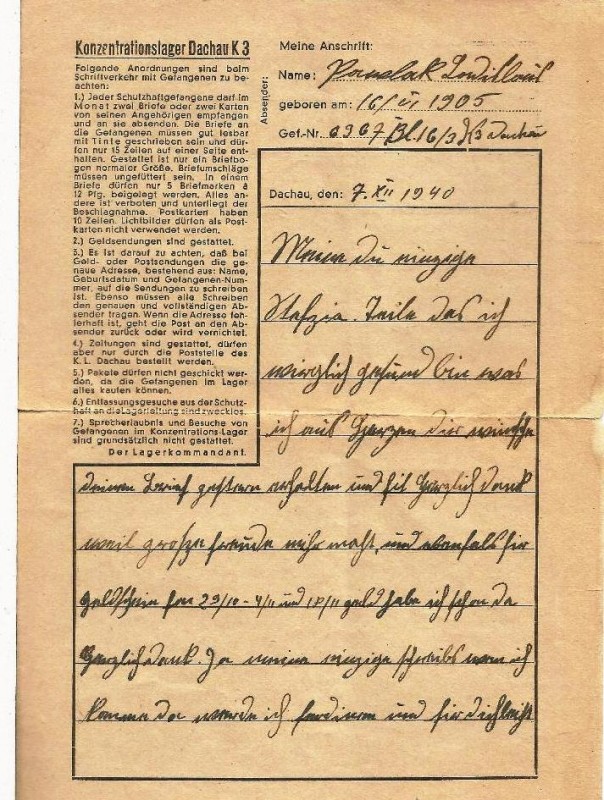 Konzentrationslager Dachau K 3
Folgende Anordnungen sind beim
Schriftverkehr mit Gefangenen zu be-
achten:
1.) Jeder Schutzhaftgefangene darf im
Monat zwei Briefe oder zwei Karten
von seinen Angehörigen empfangen
und an sie absenden. Die Briefe an
die Gefangenen müssen gut lesbar
mit Tinte geschrieben sein und dür-
fen nur 15 Zeilen auf einer Seite ent-
halten. Gestattet ist nur ein Briefbo-
gen normaler Größe. Briefumschläge
müssen ungefüttert sein. In einem
Briefe dürfen nur 5 Briefmarken à
12 Pfg. beigelegt werden. Alles an-
dere ist verboten und unterliegt der
Beschlagnahme. Postkarten haben
10 Zeilen. Lichtbilder dürfen als Post-
karten nicht verwendet werden.
2.) Geldsendungen sind gestattet.
3.) Es ist darauf zu achten, daß bei
Geld- oder Postsendungen die ge-
naue Adresse, bestehend aus: Name,
Geburtsdatum und Gefangenen-Num-
mer, auf die Sendungen zu schreiben
ist. Ebenso müssen alle Schreiben
den genauen und vollständigen Ab-
sender tragen. Wenn die Adresse feh-
lerhaft ist, geht die Post an den Ab-
sender zurück oder wird vernichtet.
4.) Zeitungen sind gestattet, dürfen
aber nur durch die Poststelle des
K. L. Dachau bestellt werden.
5.) Pakete dürfen nicht geschickt wer-
den, da die Gefangenen im Lager
alles kaufen können.
6.) Entlassungsgesuche aus der Schutz-
haft an die Lagerleitung sind zwecklos.
7.) Sprecherlaubnis und Besuche von
Gefangenen im Konzentrations-Lager
sind grundsätzlich nicht gestattet.
Der Lagerkommandant.
Absender:
Meine Anschrift:
Name:
geboren am: 16/VI 1905
Gef.-Nr. Bl. 16/3 K3 Dachau
Dachau, den: 7. XII 1940
Meine du einzige
Teile das ich
gesund bin was
ich aus Herzen dir wünsche
deinen Brief gestern erhalten und fil Herzlich dank
weil große freude mihr macht, und ebenfals fir
geldschein fon 23/10 - 4/11 und geld habe ich schon da
Herzlich dank. Ja meine einzige schreibs wen ich
komme da werde ich ferdinen und fir dich